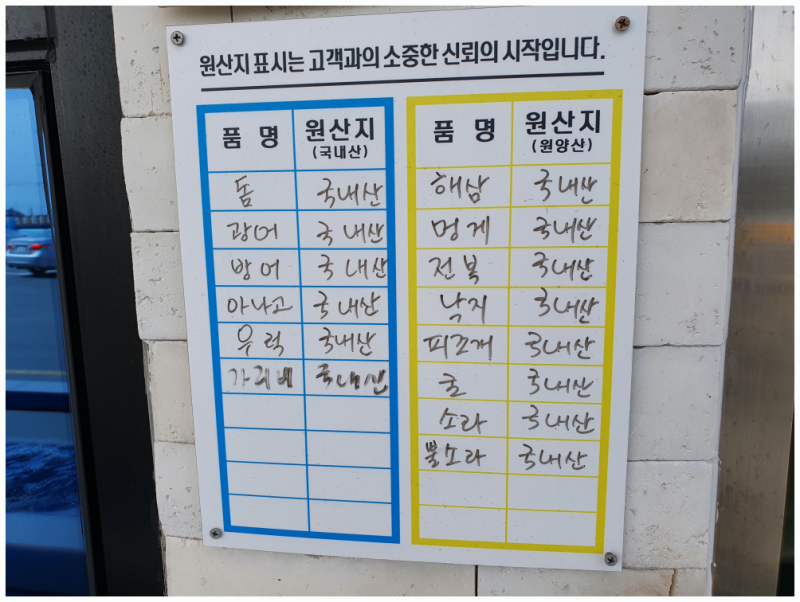 원산지 표시는 고객과의 소중한 신뢰의 시작입니다.
품 명 원산지 (국내산)
돔 국내산
광어 국내산
방어 국내산
아나고 국내산
우럭 국내산
가리비 국내산
품 명 원산지 (원양산)
해삼 국내산
멍게 국내산
전복 국내산
낙지 국내산
피조개 국내산
굴 국내산
소라 국내산
뿔소라 국내산